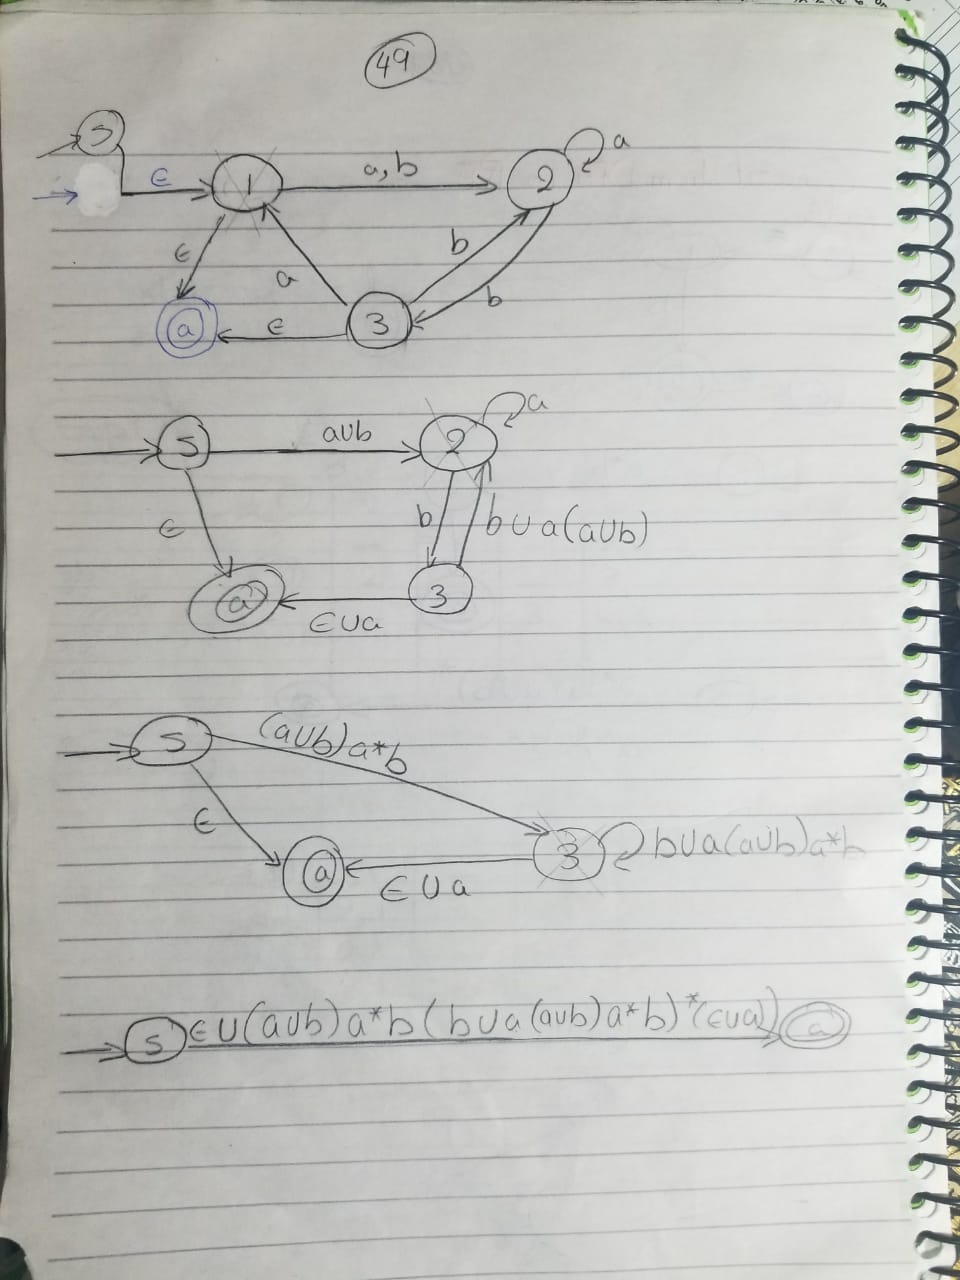 49
S
ϵ 1 a,b 2 a
ϵ a b b
a ϵ 3
S a∪b 2 a
ϵ b b∪a(a∪b)
a ϵ∪a 3
S (a∪b)a*b
ϵ 3 b∪a(a∪b)a*b
a ϵ∪a
S ϵ∪(a∪b)a*b(b∪a(a∪b)a*b)*(ϵ∪a) a